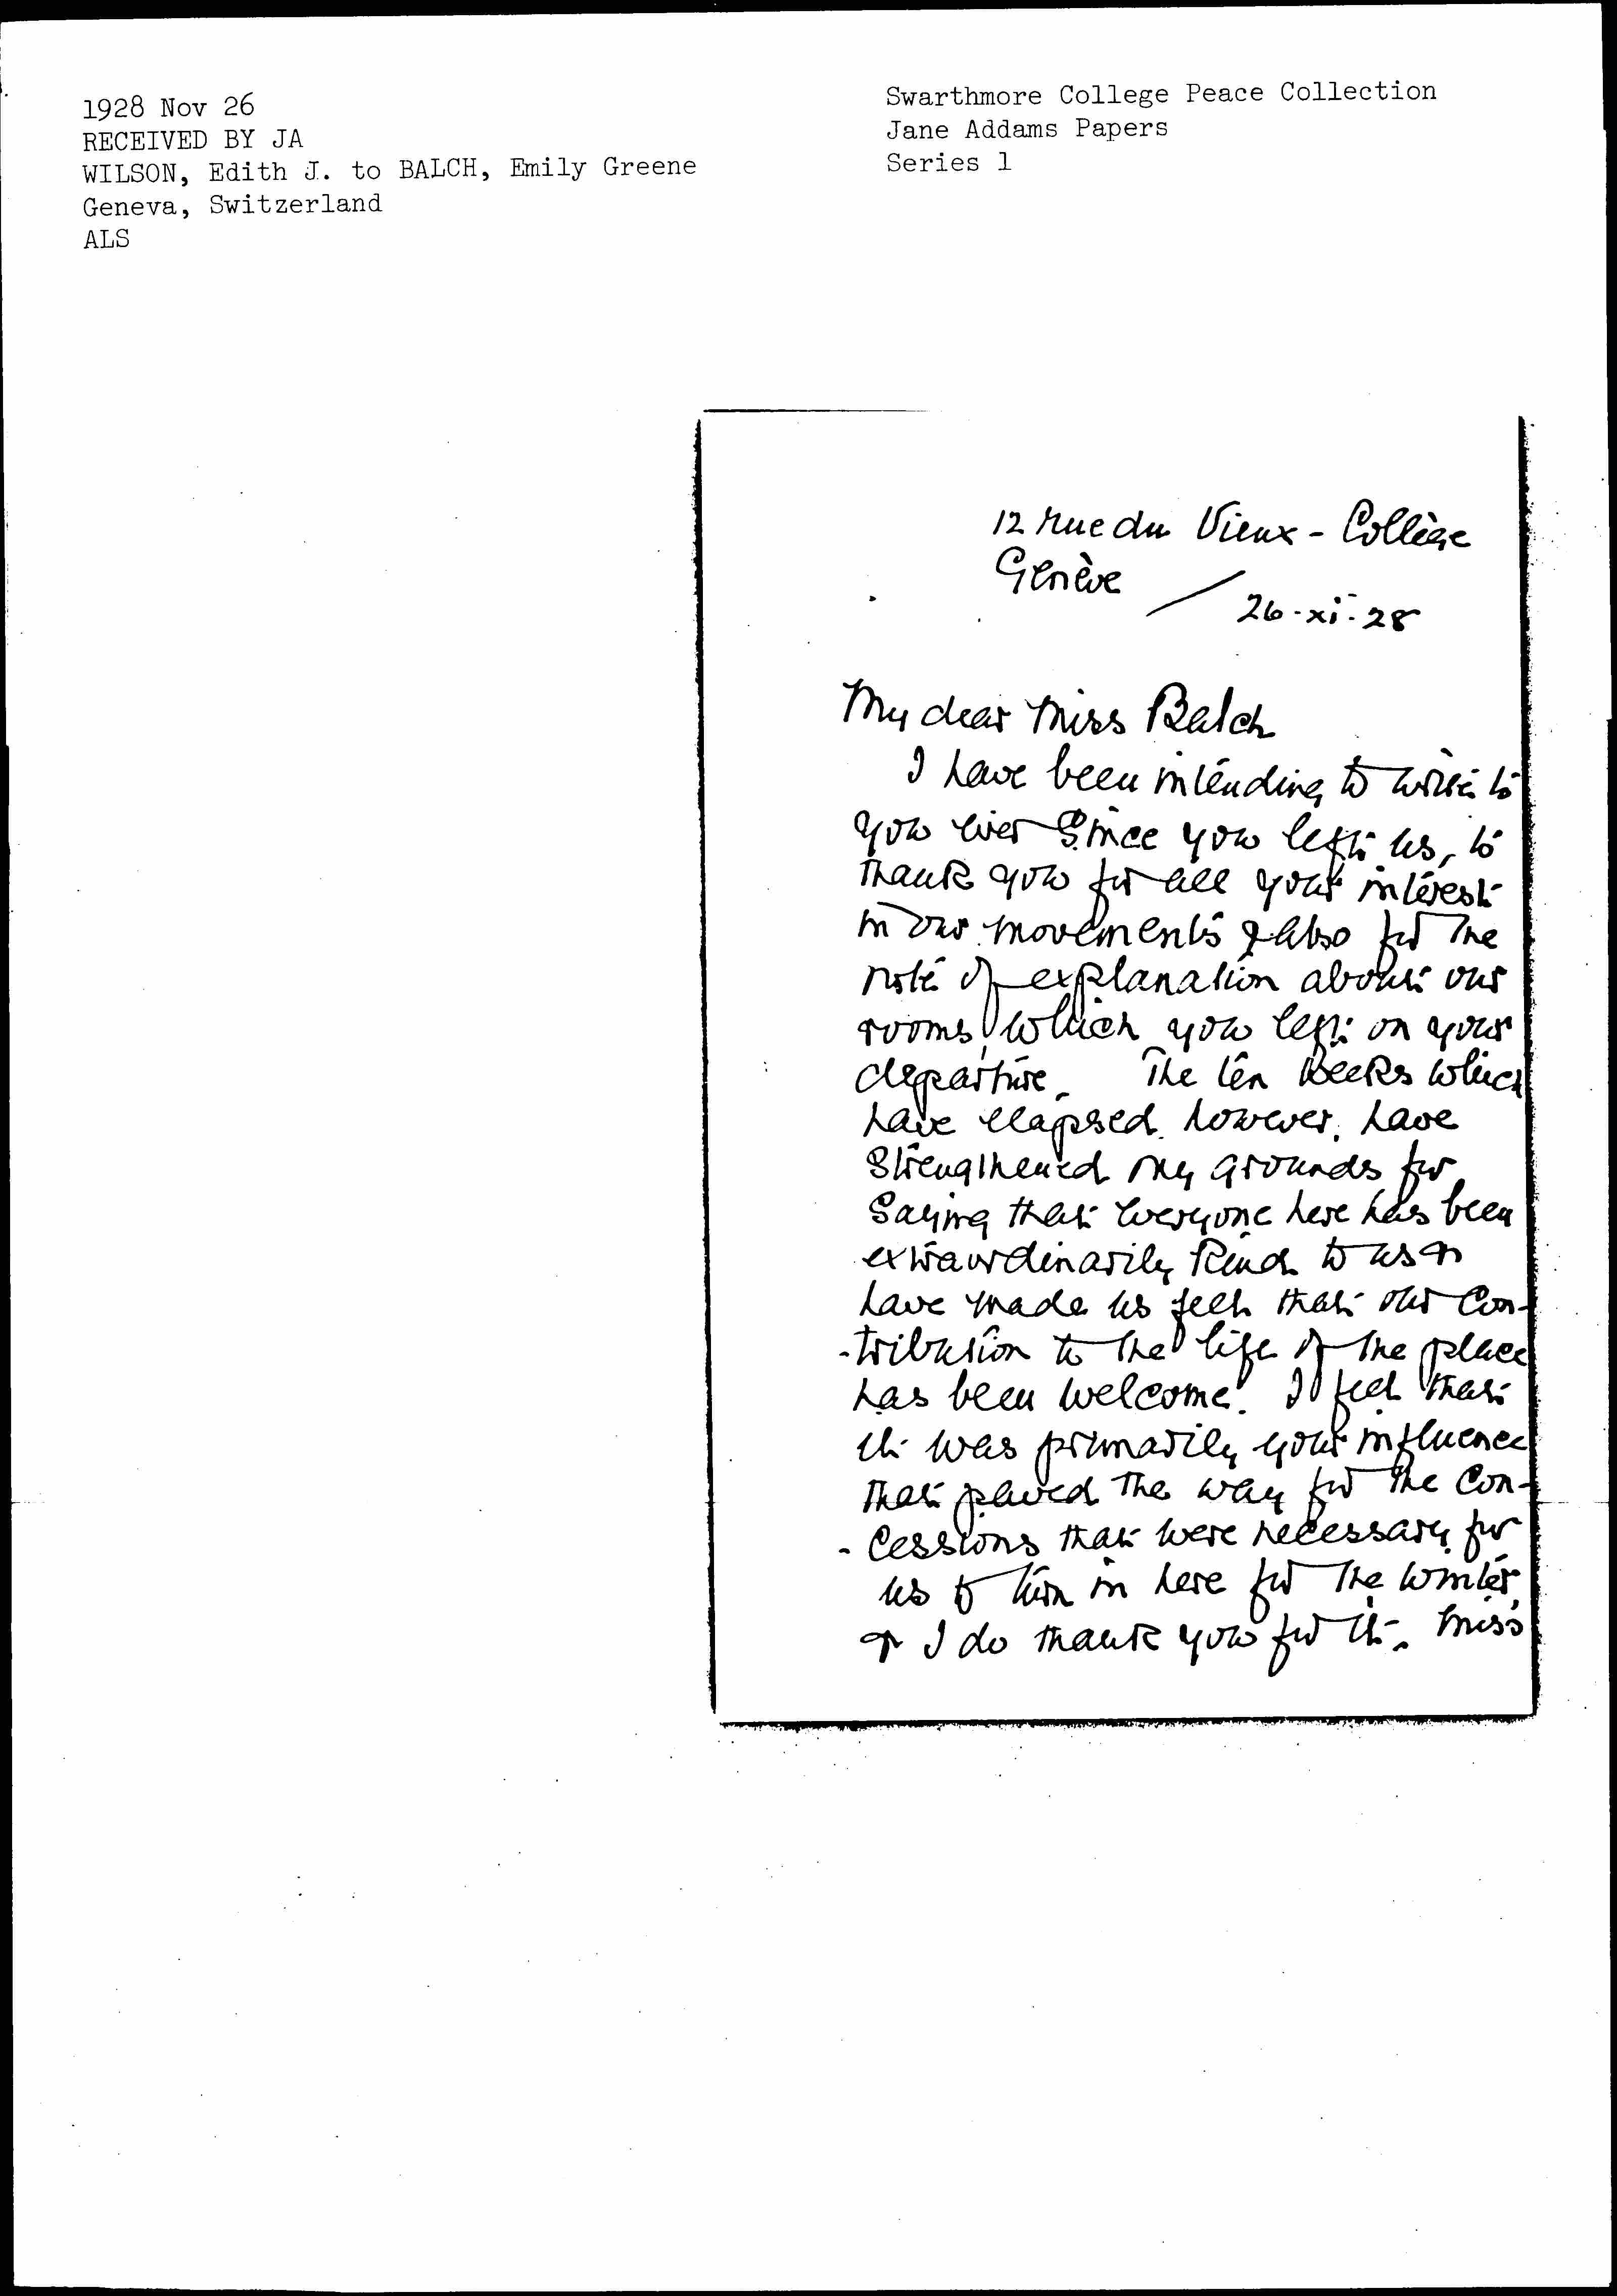 1928 Nov 26
RECEIVED BY JA
WILSON, Edith J. to BALCH, Emily Greene
Geneva, Switzerland
ALS
Swarthmore College Peace Collection
Jane Addams Papers
Series 1
12 rue du Vieux - Collège
Genève
26 - xi - 28
My dear Miss Balch
I have been intending to write to
you ever since you left us, to
thank you for all your interest
in our movements & also for the
note of explanation about our
rooms, which you left on your
departure. The ten weeks which
have elapsed, however, have
strengthened my grounds for
saying that everyone here has been
extraordinarily kind to us &
have made us feel that our con-
-tribution to the life of the place
has been welcome. I feel that
it was primarily your influence
that paved the way for the con-
-cessions that were necessary for
us to turn in here for the winter,
& I do thank you for it. Miss